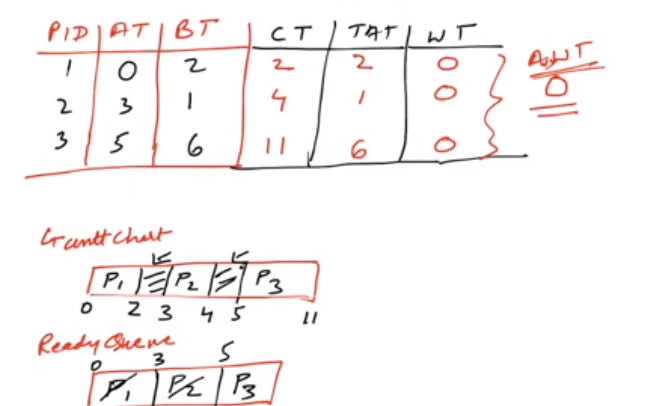 PID AT BT CT TAT WT
1 0 2 2 2 0
2 3 1 4 1 0
3 5 6 11 6 0
AWT
0
Gantt Chart
P1 P2 P3
0 2 3 4 5 11
Ready Queue
0 3 5
P1 P2 P3